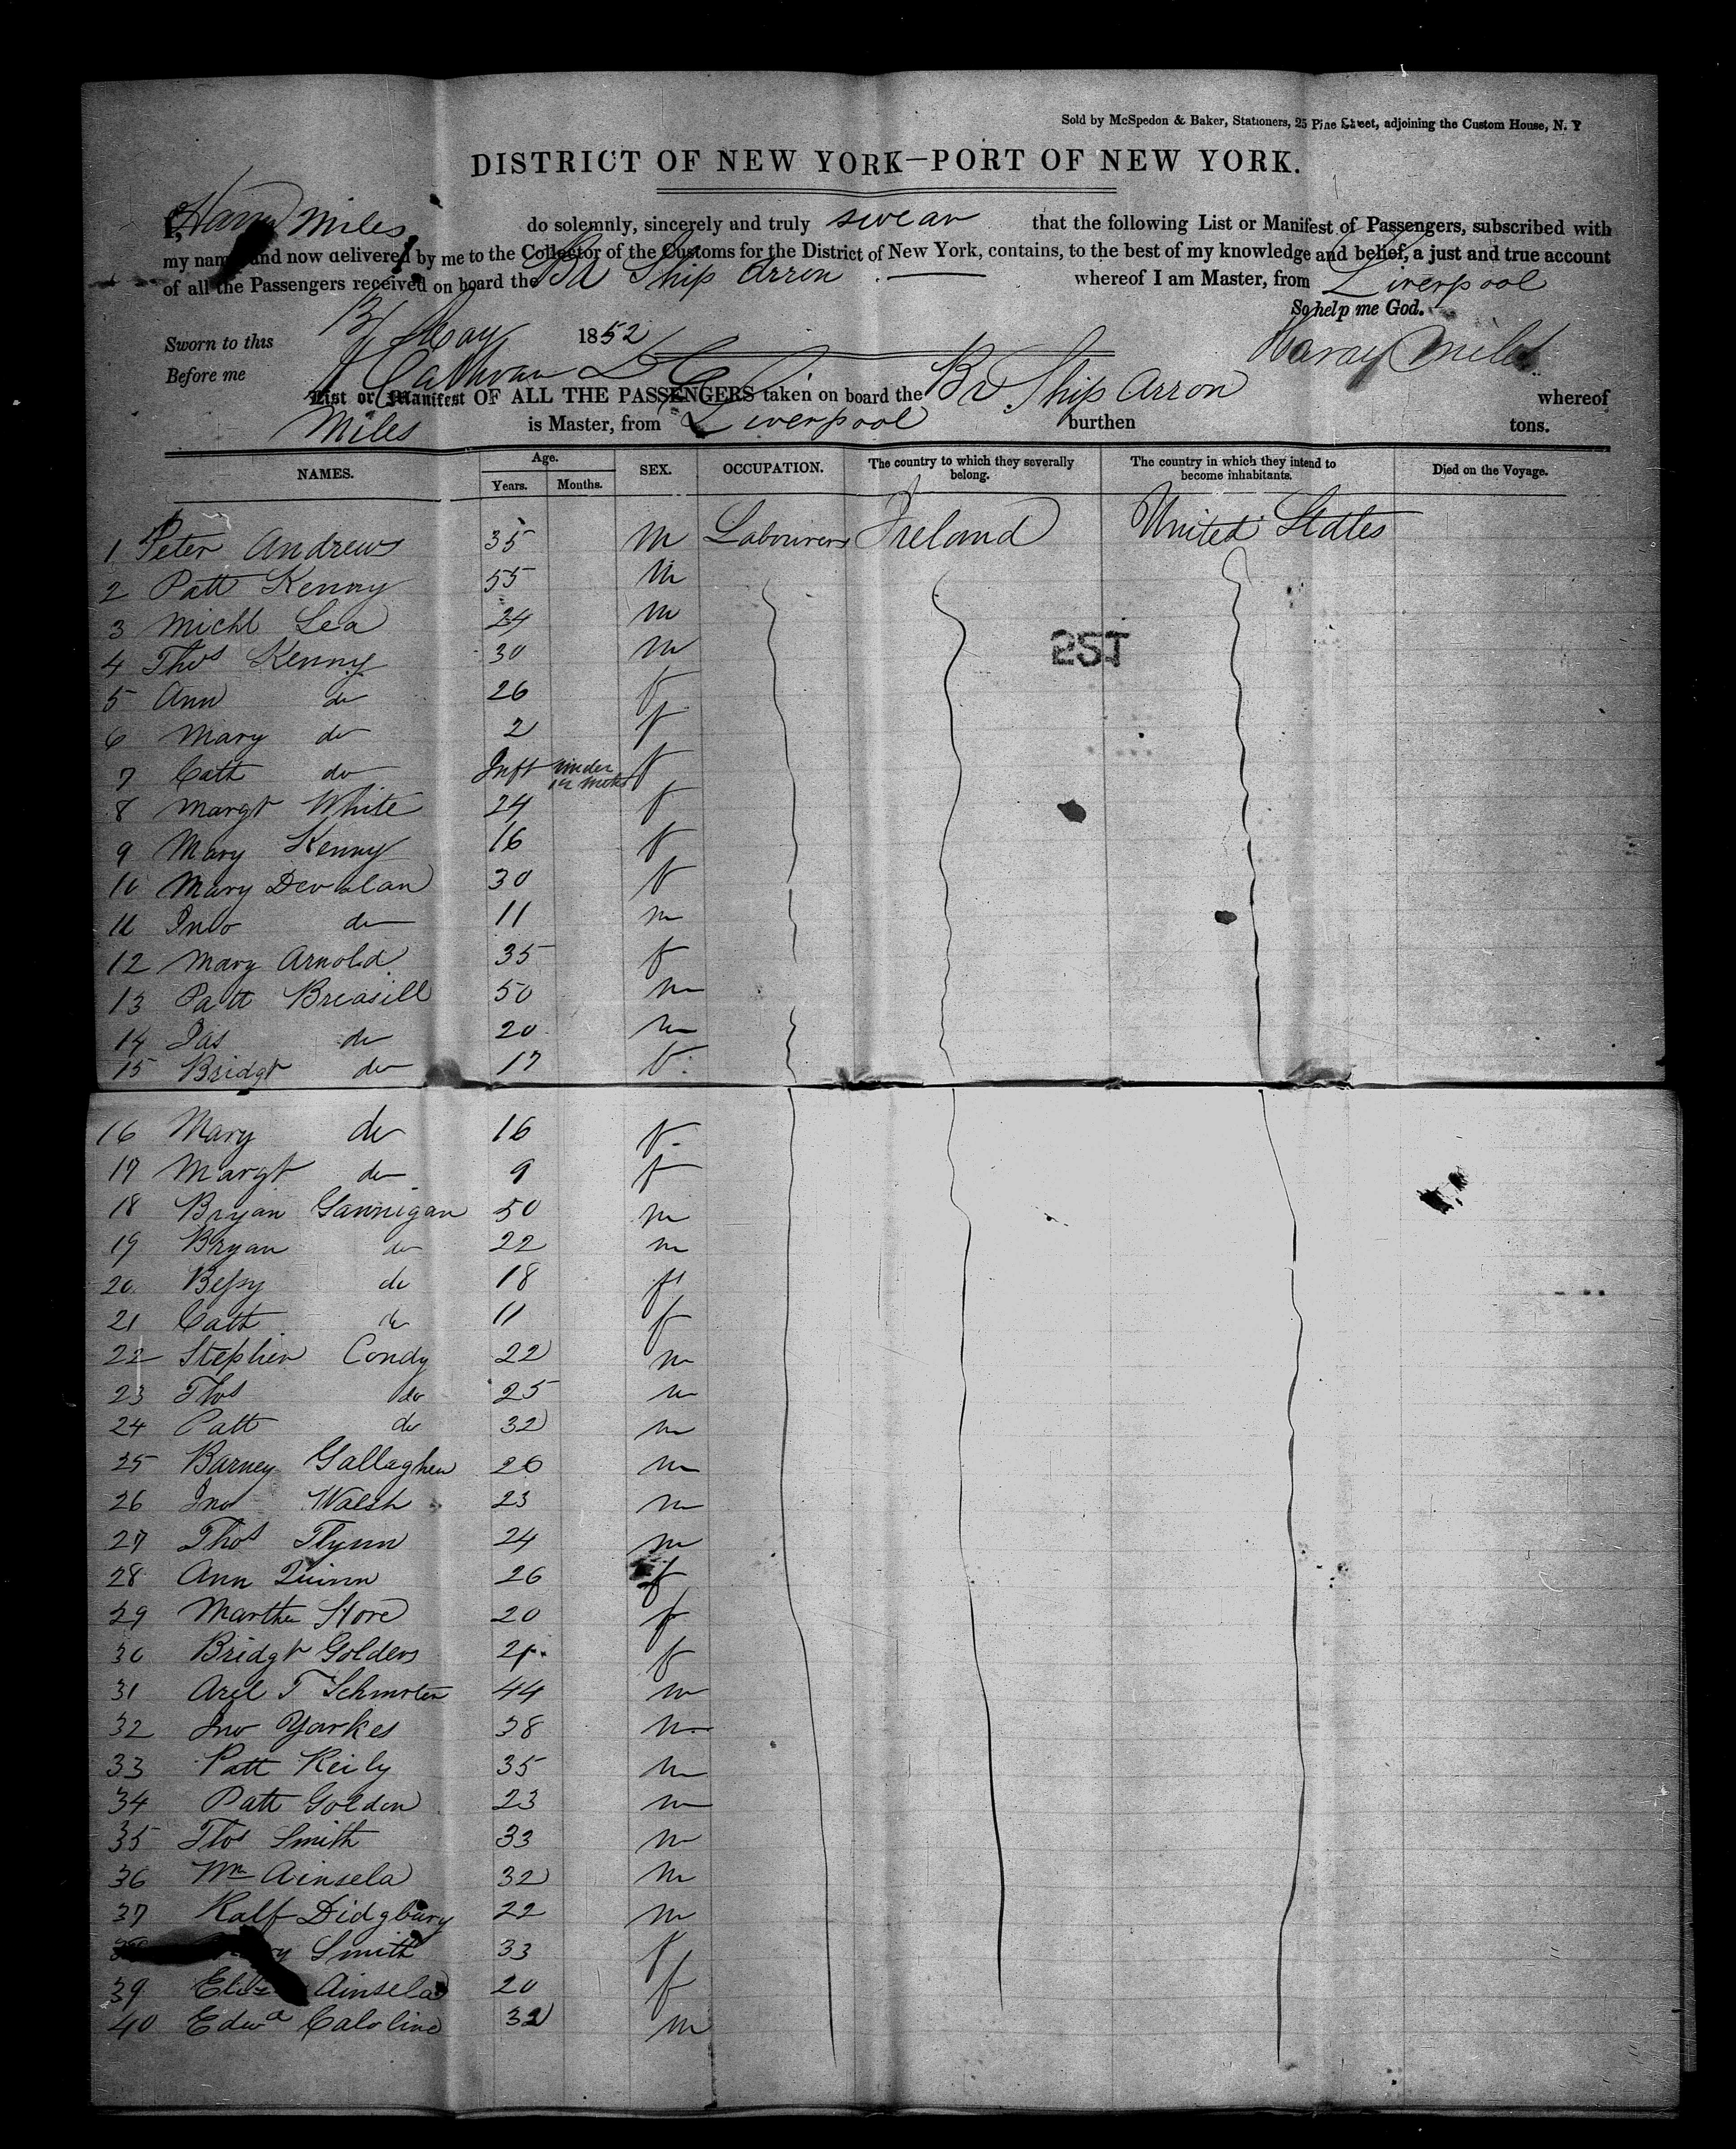 Sold by McSpedon & Baker, Stationers, 25 Pine Street, adjoining the Custom House, N. Y
DISTRICT OF NEW YORK—PORT OF NEW YORK.
I, Miles do solemnly, sincerely and truly swear that the following List or Manifest of Passengers, subscribed with
my name and now delivered by me to the Collector of the Customs for the District of New York, contains, to the best of my knowledge and belief, a just and true account
of all the Passengers received on board the Br Ship Arron whereof I am Master, from Liverpool
So help me God.
Sworn to this May 1852
Before me Miles
List or Manifest OF ALL THE PASSENGERS taken on board the Br Ship Arron whereof
Miles is Master, from Liverpool burthen tons.
NAMES. Age. Years. Months. SEX. OCCUPATION. The country to which they severally belong. The country in which they intend to become inhabitants. Died on the Voyage.
1 Peter Andrews 35 M Labourers Ireland United States
2 Patt Kenny 55 M
3 Michl Lea 24 M
4 Thos Kenny 30 M
5 Ann do 26 f
6 Mary do 2 f
7 Cath do Inft under 12 moths f
8 Margt White 24 f
9 Mary Kenny 16 f
10 Mary Devolan 30 f
11 Jno do 11 m
12 Mary Arnold 35 f
13 Patt Breasill 50 m
14 Jas do 20 m
15 Bridgt do 17 f
16 Mary do 16 f
17 Margt do 9 f
18 Bryan Gannigan 50 m
19 Bryan do 22 m
20 Bessy do 18 f
21 Cath do 11 f
22 Stephen Condy 22 m
23 Thos do 25 m
24 Patt do 32 m
25 Barney Gallagher 26 m
26 Jno Walsh 23 m
27 Thos Flynn 24 m
28 Ann Quinn 26 f
29 Martha Store 20 f
30 Bridgt Golders f
31 T Schmoter 44 m
32 Jno Yarkes 38 m
33 Patt Reily 35 m
34 Patt Golden 23 m
35 Thos Smith 33 m
36 Wm Ainsela 32 m
37 Ralf Didgbury 22 m
38 Smith 33 f
39 Eliz Ainsela 20 f
40 Edwd Caroline 32 m